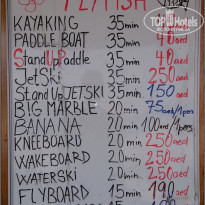 FLYFISH
TOP Hotels
KAYAKING 35min 40 aed
PADDLE BOAT 35min 40 aed
StandUPaddle 35min 50 aed
JetSki 35min 250 aed
Stand UpJETSKI 15min 150 aed
BIG MARBLE 20min 75aed/1pers
BANANA 20min 100aed/1pers
KNEEBOARD 20min 250 aed
WAKEBOARD 20min 250 aed
WATERSKI 20min 250 aed
FLYBOARD 15min 190 aed